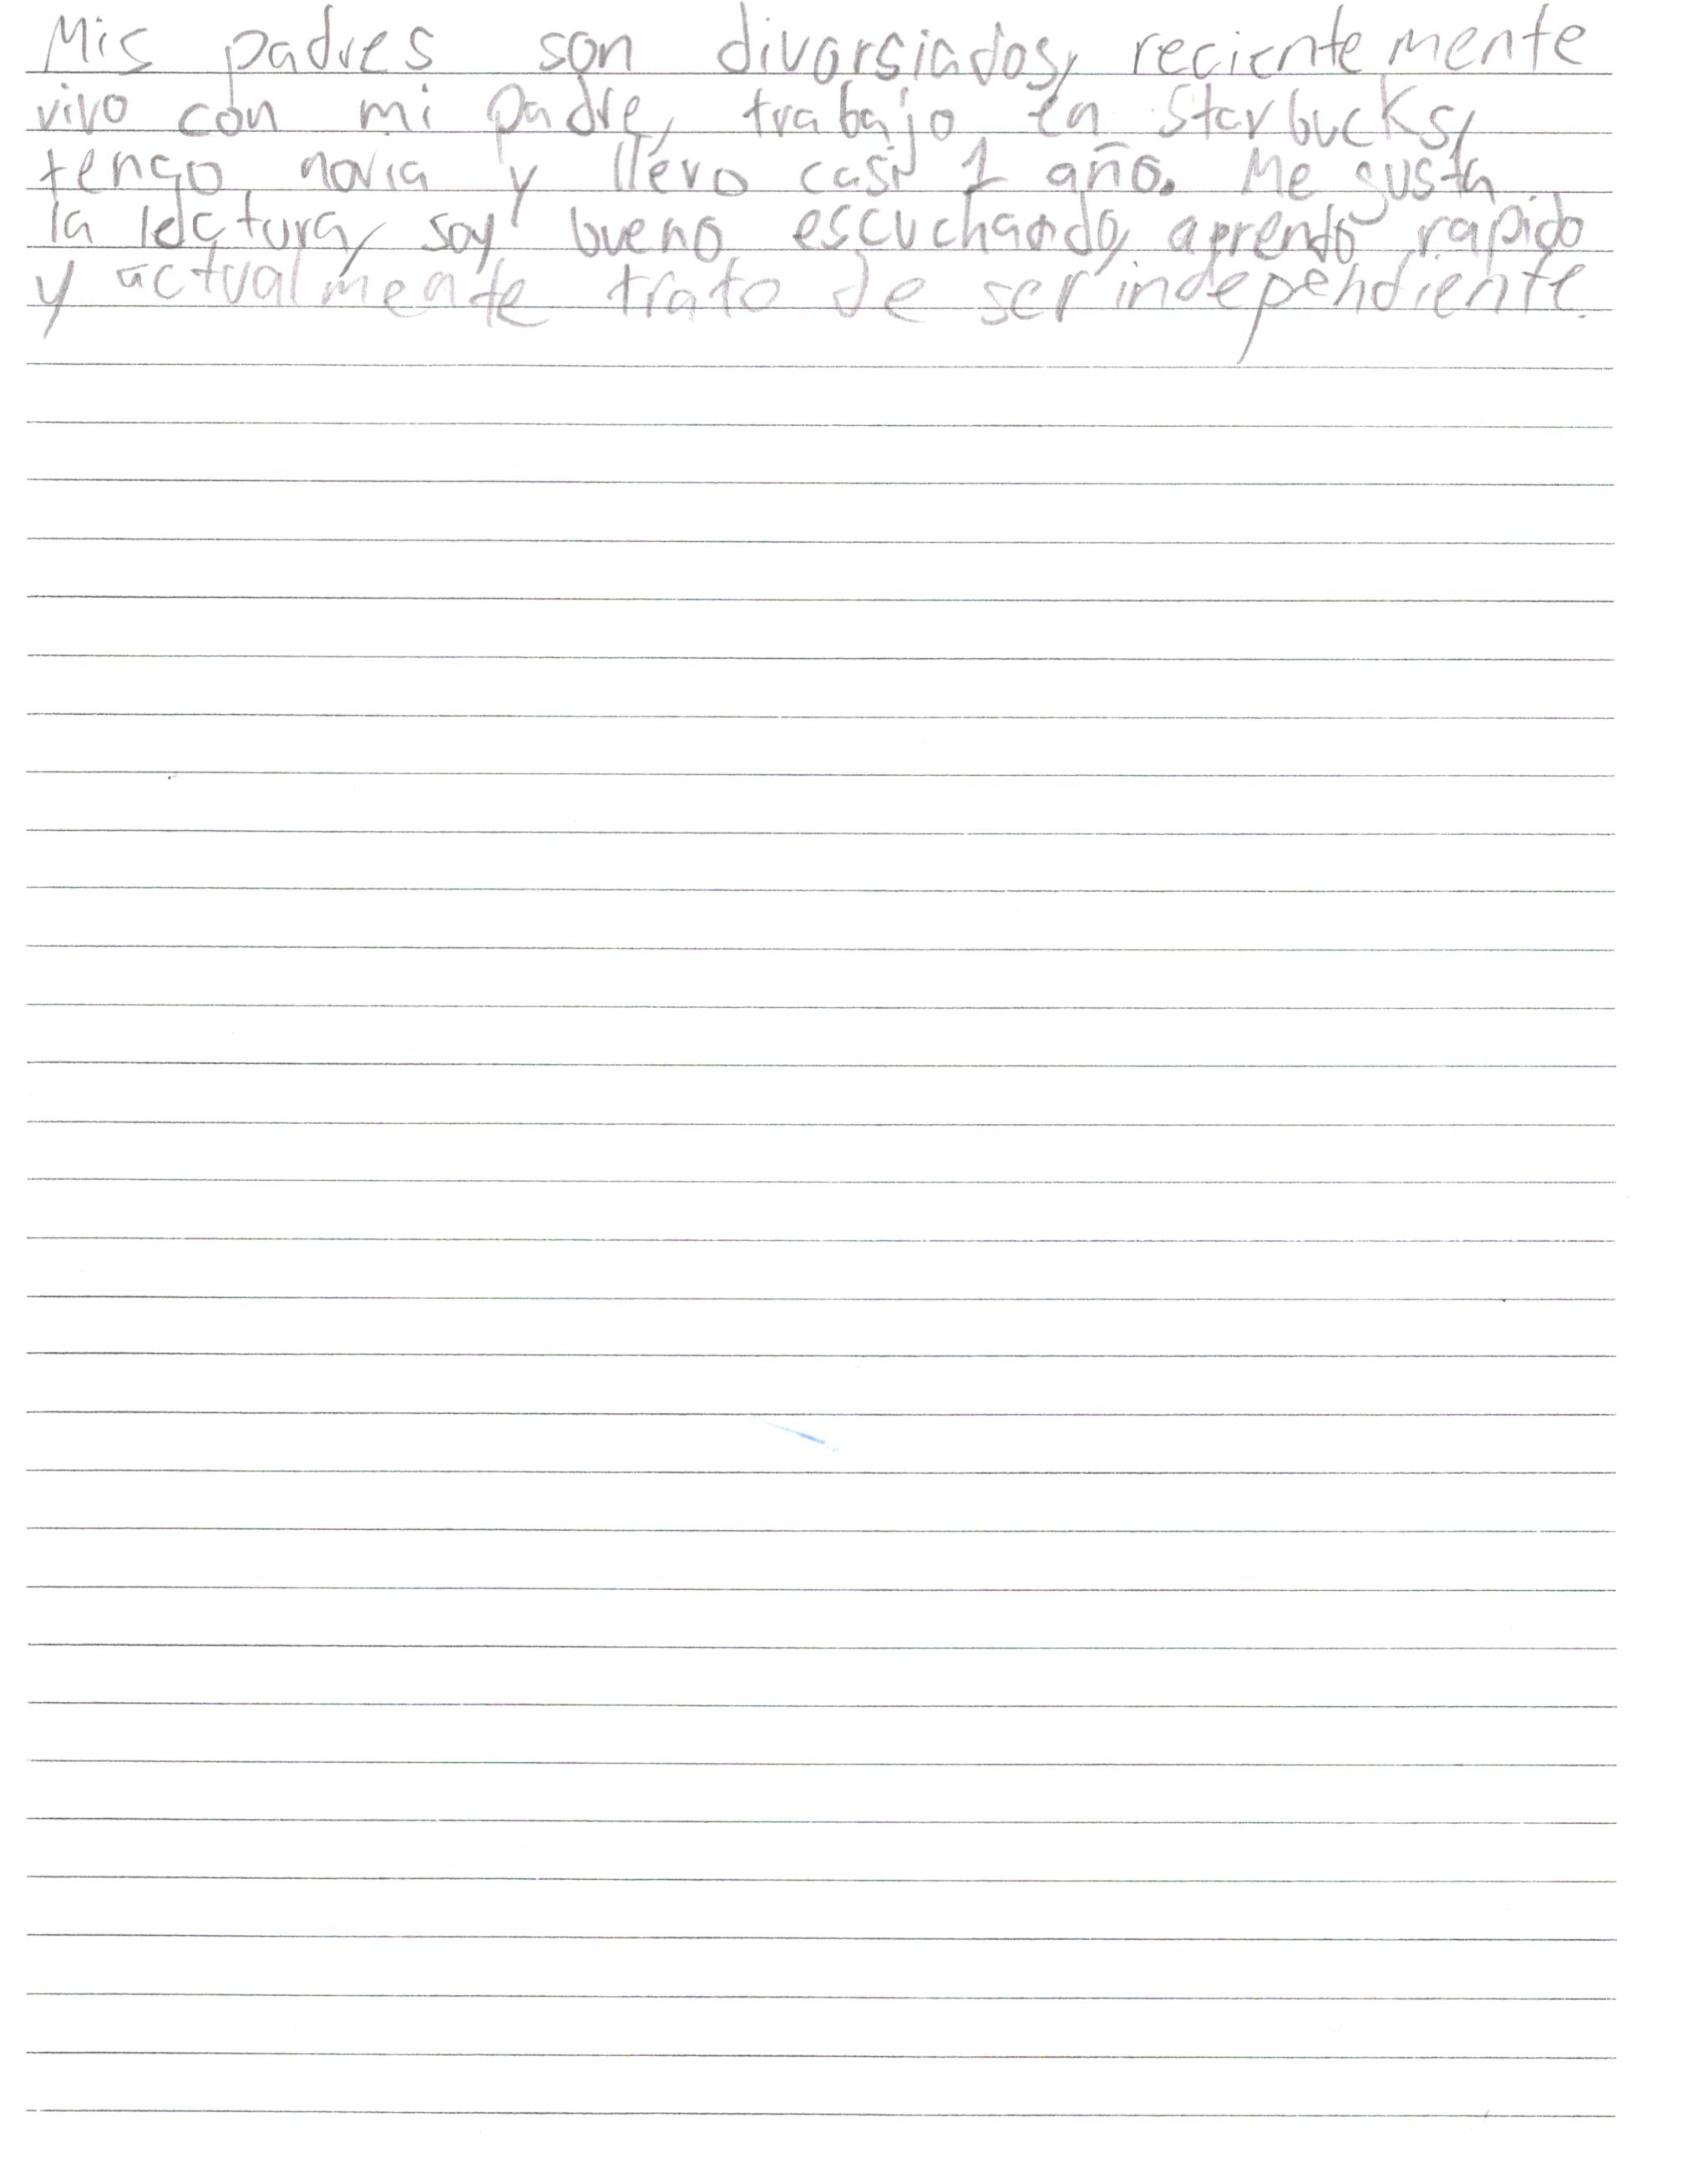 Mis padres son divorsiados, recientemente
vivo con mi padre, trabajo en Starbucks,
tengo novia y llevo casi 1 año. Me gusta
la lectura, soy bueno escuchando, aprendo rapido
y actualmente trato de ser independiente.